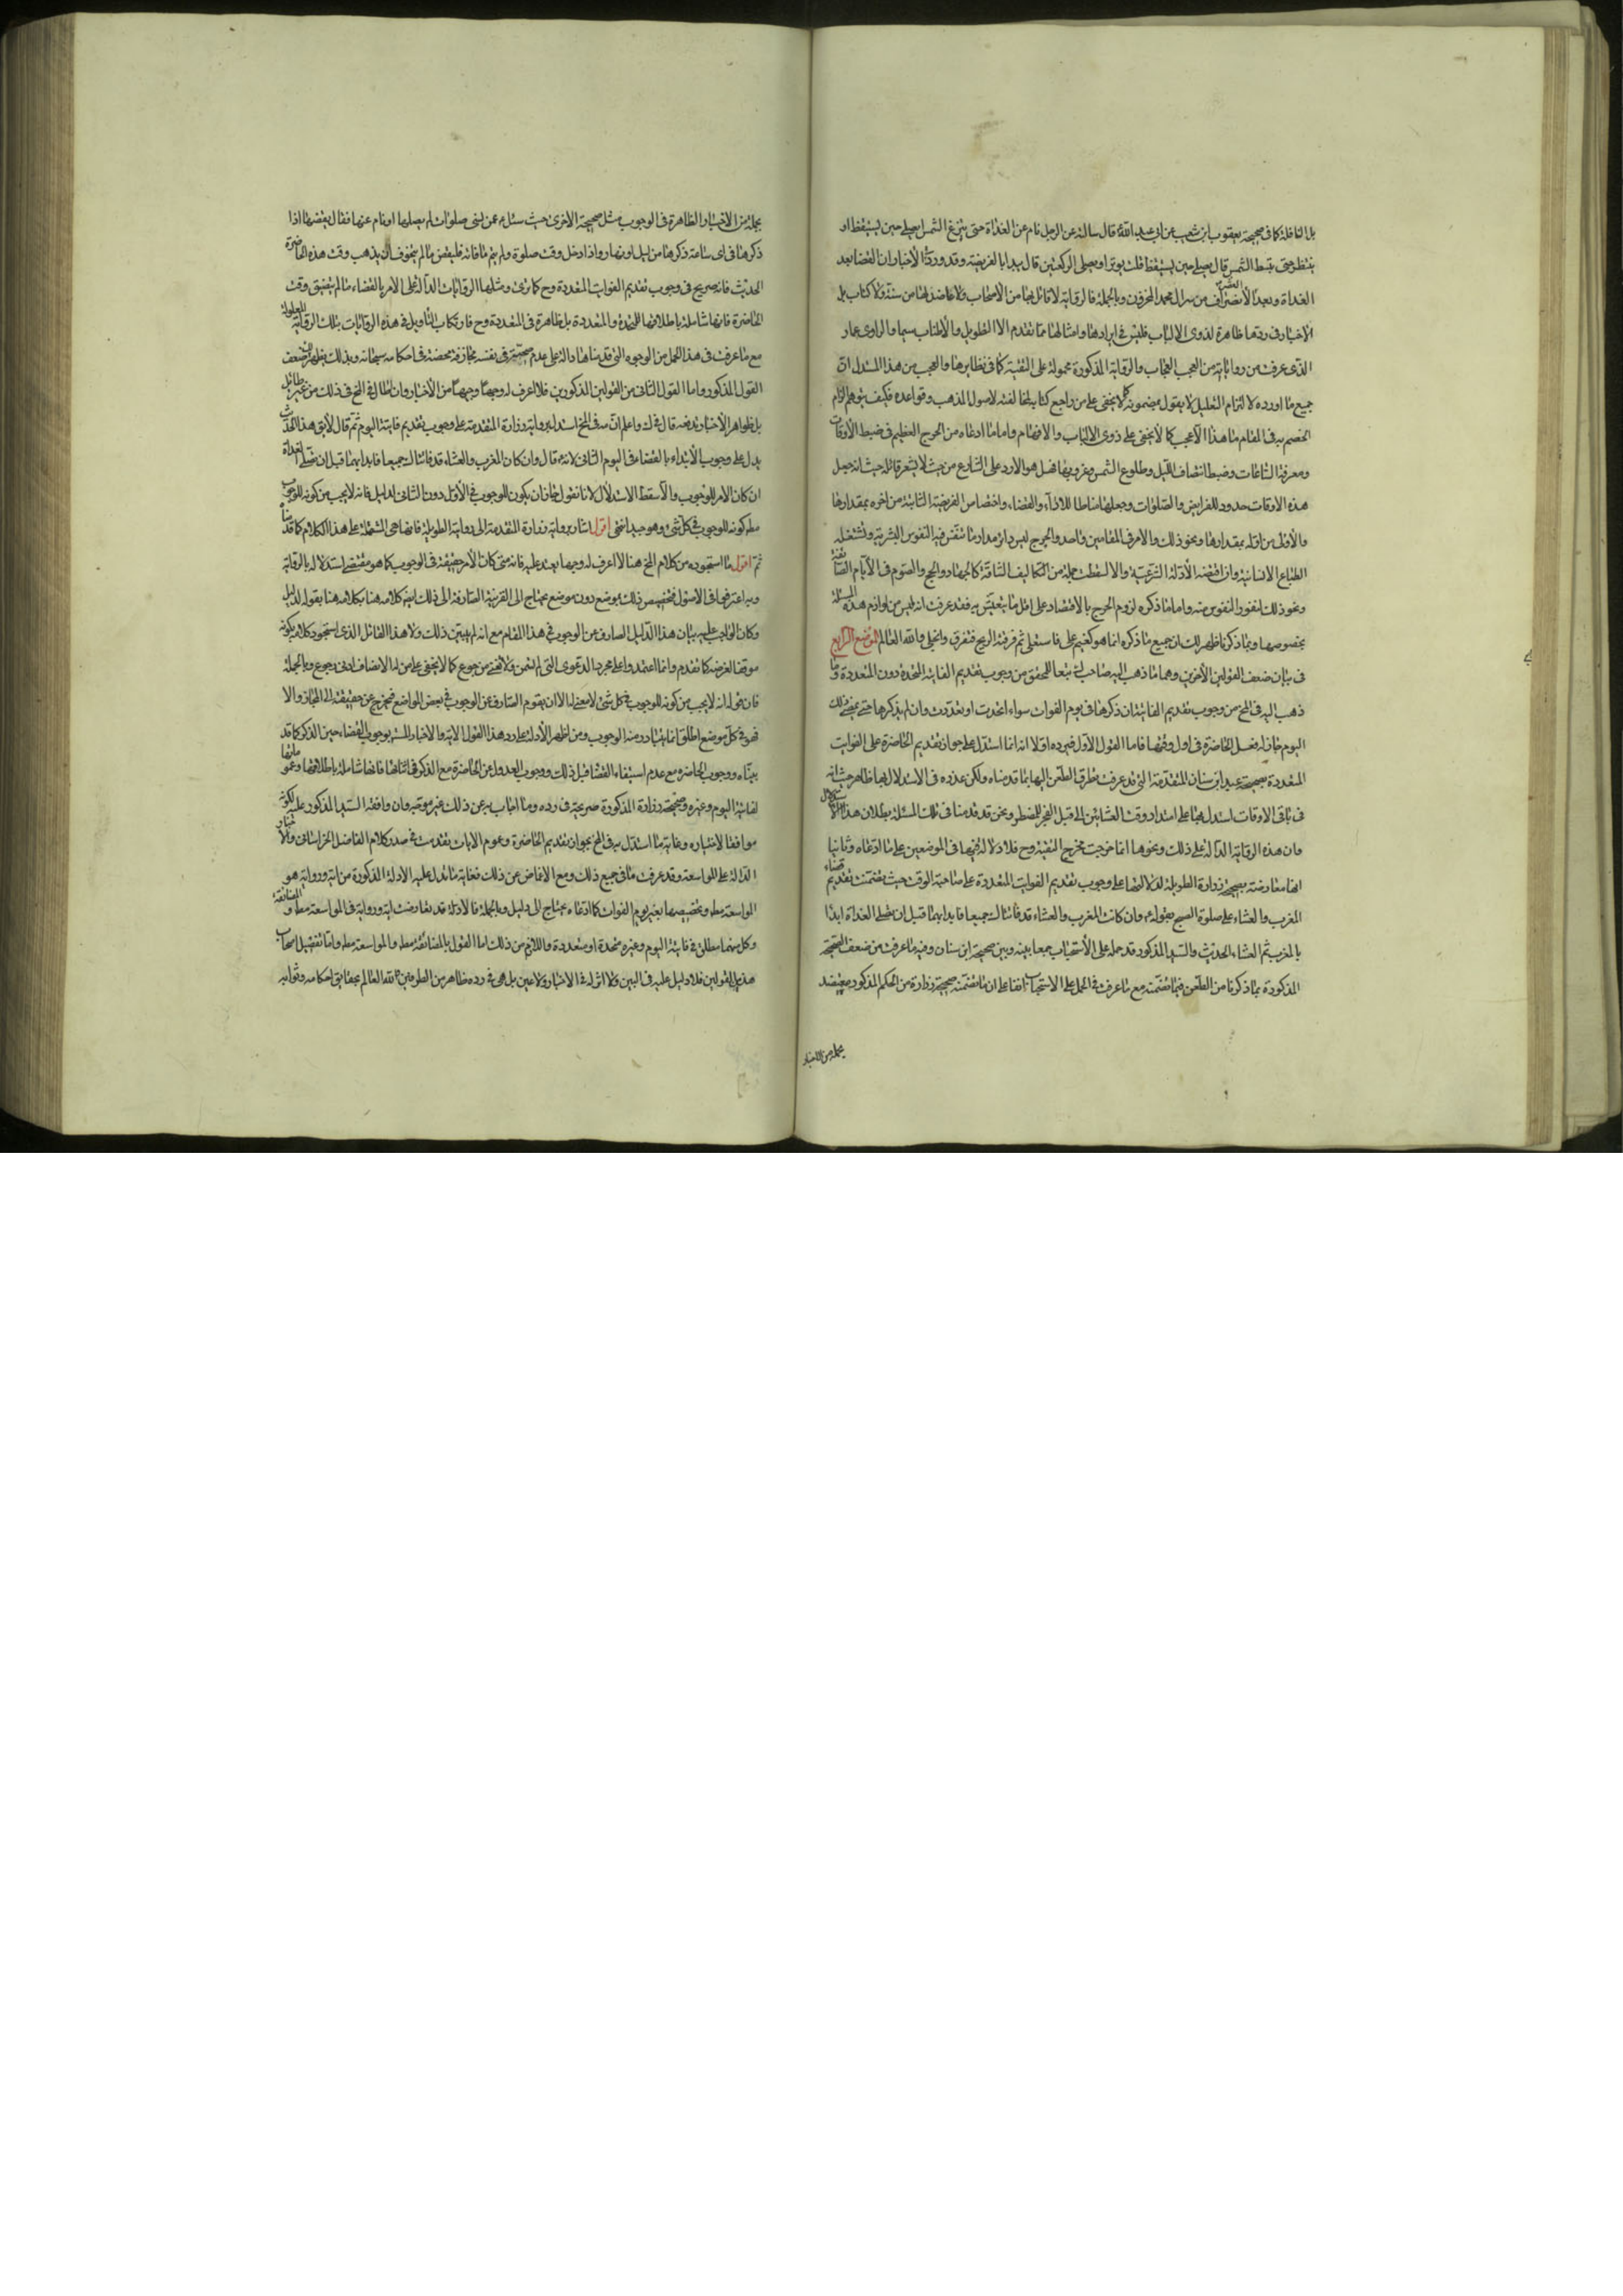 بل النافلة كما فى صحيحة يعقوب ابن شعيب عن ابى عبد الله قال سالته عن الرجل نام عن الغداة حتى تبزغ الشمس ايصلى حين يستيقظ او
ينتظر حتى تنبسط الشمس قال يصلى حين يستيقظ قلت يوتر او يصلى الركعتين قال يبدا بالفريضة وقد وردت الأخبار ان القضا بعد
الغداة وبعد العصر من سر ال محمد المخزون وبالجملة فالرواية لا قائل بها من الاصحاب ولا عاضد لها من سنة ولا كتاب بل
الاخبار فى ردها ظاهرة لذوى الالباب فليس فى ايرادها وامثالها مما تقدم الا التطويل والاطناب سيما والراوى عمار
الذى عرفت من رواياته من العجب العجاب والرواية المذكورة محمولة على التقية كما فى نظايرها والعجب من هذا المستدل ان
جميع ما اورده لالتزام التعليل لا يقول بمضمونه كما لا يخفى على من راجع كتابه لمخالفته لاصول المذهب وقواعده فكيف يتوهم الزام
الخصم به فى المقام ما هذا الا عجيب كما لا يخفى على ذوى الالباب والافهام واما ما ادعاه من الحرج العظيم فى ضبط الأوقات
ومعرفة الساعات وضبط انتصاف الليل وطلوع الشمس وغروبها فهل هو الا رد على الشارع من حيث لا يشعر قائله حيث انه جعل
هذه الاوقات حدودا للفرايض والصلوات وجعلها مناطا للاداء والقضاء واختصاص الفريضة الثانية من اخره بمقدارها
والأولى من اوله بمقدارها ونحو ذلك والامر فى المقامين واحد والحرج ليس دائرا مدار ما تنفر منه النفوس البشرية وتستثقله
الطباع الانسانية وان اقتضته الأدلة الشرعية والا لسقطت جملة من التكاليف الشاقة كالجهاد والحج والصوم فى الأيام الصائفة
ونحو ذلك لنفور النفوس منه واما ما ذكره لزوم الحرج بالاقتصار على اقل ما يتعيش به فقد عرفت انه ليس من لوازم هذه المسئلة
بخصوصها وبما ذكرنا ظهر لك ان جميع ما ذكره انما هو كغيم على فاستعلى ثم فرقته الريح فتفرق وانجلى والله العالم الموضع الرابع
فى بيان ضعف القولين الأخرين وهما ما ذهب اليه صاحب تبعا للمحقق من وجوب تقديم الفايتة المتحدة دون المتعددة وما
ذهب اليه فى لخ من وجوب تقديم الفايتة ان ذكرها فى يوم الفوات سواء اتحدت او تعددت وان لم يذكرها حتى يمضى ذلك
اليوم جاز له فعل الحاضرة فى اول وقتها فاما القول الأول فيرده اولا انه انما استدل على جواز تقديم الحاضرة على الفوايت
المتعددة بصحيحة عبد الله ابن سنان المتقدمة التى قد عرفت تطرق الطعن اليها بما قدمناه ولكن عذره فى الاستدلال بها ظاهر حيث انه
فى باقى الاوقات استدل بها على امتداد وقت العشائين الى قبل الفجر للمضطر ونحن قد قدمنا فى تلك المسئلة بطلان هذا الاستدلال
وان هذه الرواية الدالة على ذلك ونحوها انما خرجت مخرج التقية وح فلا دلالة فيها فى الموضعين على ما ادعاه وثانيا
انها معارضة بصحيحة زرارة الطويلة لدلالتها على وجوب تقديم الفوايت المتعددة على صاحبة الوقت حيث تضمنت تقديم قضاء
المغرب والعشاء على صلوة الصبح بقوله وان كانت المغرب والعشاء قد فاتتاك جميعا فابدا بهما قبل ان تصلى الغداة ابدا
بالمغرب ثم العشاء الحديث والسيد المذكور قد حمله على الأستحباب جمعا بينه وبين صحيحة ابن سنان وفيه ما عرفت من ضعف الصحيحة
المذكورة بما ذكرنا من الطعن فيما تضمنته مع ما عرفت فى الحمل على الاستحباب انفا على ان ما تضمنته صحيحة زرارة من الحكم المذكور معتضد
بجملة من الاخبار
بجملة من الاخبار الظاهرة فى الوجوب مثل صحيحة الاخرى حيث سئل عمن نسى صلوات لم يصلها او نام عنها فقال يقضيها اذا
ذكرها فى اى ساعة ذكرها من ليل او نهار واذا دخل وقت صلوة ولم يتم ما فاته فليقض ما لم يتخوف ان يذهب وقت هذه الحاضرة
الحديث فانه صريح فى وجوب تقديم الفوايت المتعددة وح كما ترى ومثلها الروايات الدالة على الامر بالقضاء ما لم يتضيق وقت
الحاضرة فانها شاملة باطلاقها للمتحدة والمتعددة بل ظاهرة فى المتعددة وح فارتكاب التأويل فى هذه الروايات بتلك الرواية المعلولة
مع ما عرفت فى هذا الحمل من الوجوه التى قدمناها دالة على عدم صحته فى نفسه مجازفة محضة فى احكامه سبحانه وبذلك يظهر لك ضعف
القول المذكور واما القول الثانى من القولين المذكورين فلا اعرف له وجها وجيها من الأخبار وان اطال فى لخ فى ذلك من غير طائل
بل ظواهر الأخبار تدفعه قال فى ك واعلم ان مه فى لخ استدل برواية زرارة المتقدمة على وجوب تقديم فايتة اليوم ثم قال لا يق هذا الحديث
يدل على وجوب الأبتداء بالقضاء فى اليوم الثانى لانه قال وان كان المغرب والعشاء قد فاتتاك جميعا فابدا بهما قبل ان تصلى الغداة
ان كان الامر للوجوب والا سقط الاستدلال لانا نقول جاز ان يكون للوجوب فى الأول دون الثانى لدليل فانه لا يجب من كونه للوجوب
مط كونه للوجوب فى كل شئ وهو جيد انتهى اقول اشار برواية زرارة المتقدمة الى روايته الطويلة فانها هى المشتملة على هذا الكلام كما قدمناه
ثم اقول ما استجوده من كلام لخ هنا لا اعرف له وجها يعتد عليه فانه متى كان الأمر حقيقة فى الوجوب كما هو مقتضى استدلاله بالرواية
وبه اعترفوا فى الاصول فتخصيص ذلك بموضع دون موضع يحتاج الى القرينة الصارفة الى ذلك كلامه هنا بقوله لدليل
وكان الواجب عليه بيان هذا الدليل الصارف عن الوجوب فى هذا المقام مع انه لم يبين ذلك ولا هذا القائل الذى استجود كلامه بكونه
موافقا لغرضه كما تقدم وانما اعتمدوا على مجرد الدعوى التى لا تسمن ولا تغنى من جوع كما لا يخفى على من له الى الانصاف ادنى رجوع وبالجملة
فان قوله انه لا يجب من كونه للوجوب فى كل شئ لا معنى له الا ان يقوم الصارف عن الوجوب فى بعض المواضع فيخرج عن حقيقته الى المجاز والا
فهو فى كل موضع اطلق انما يتبادر منه الوجوب ومن اظهر الأدلة على رد هذا القول الاية والاخبار بوجوب القضاء حين الذكر كما قد
بيناه ووجوب الحاضرة مع عدم استيفاء القضا قبل ذلك ووجوب العدول عن الحاضرة مع الذكر فى اثنائها فانها شاملة باطلاقها وعمومها
لفائتة اليوم وغيره وصحيحة زرارة المذكورة صريحة فى رده وما اجاب به عن ذلك غير موجه وان وافقه السيد المذكور عليه لكونه
موافقا لاختياره وغاية ما استدل به فى لخ بجواز تقديم الحاضرة وعموم الايات تقدمت فى صدر كلام الفاضل الخراسانى والاخبار
الدالة على المواسعة وقد عرفت ما فى جميع ذلك ومع الاغماض عن ذلك فغاية ما تدل عليه الادلة المذكورة من اية ورواية هو
المواسعة مط وتخصيصها بغير يوم الفوات كما ادعاه يحتاج الى دليل وبالجملة فالادلة قد تعارضت اية ورواية فى المواسعة مط والمضائقة
وكل منهما مطلق فى فايتة اليوم وغيره متحدة او متعددة واللازم من ذلك اما القول بالمضائقة مط والمواسعة مط واما تفصيل اصحاب
هذين القولين فلا دليل عليه فى البين ولا اثر له فى الاخبار ولا عين بل هى فى رده ظاهر من الطرفين والله العالم بحقائق احكامه ونوابه